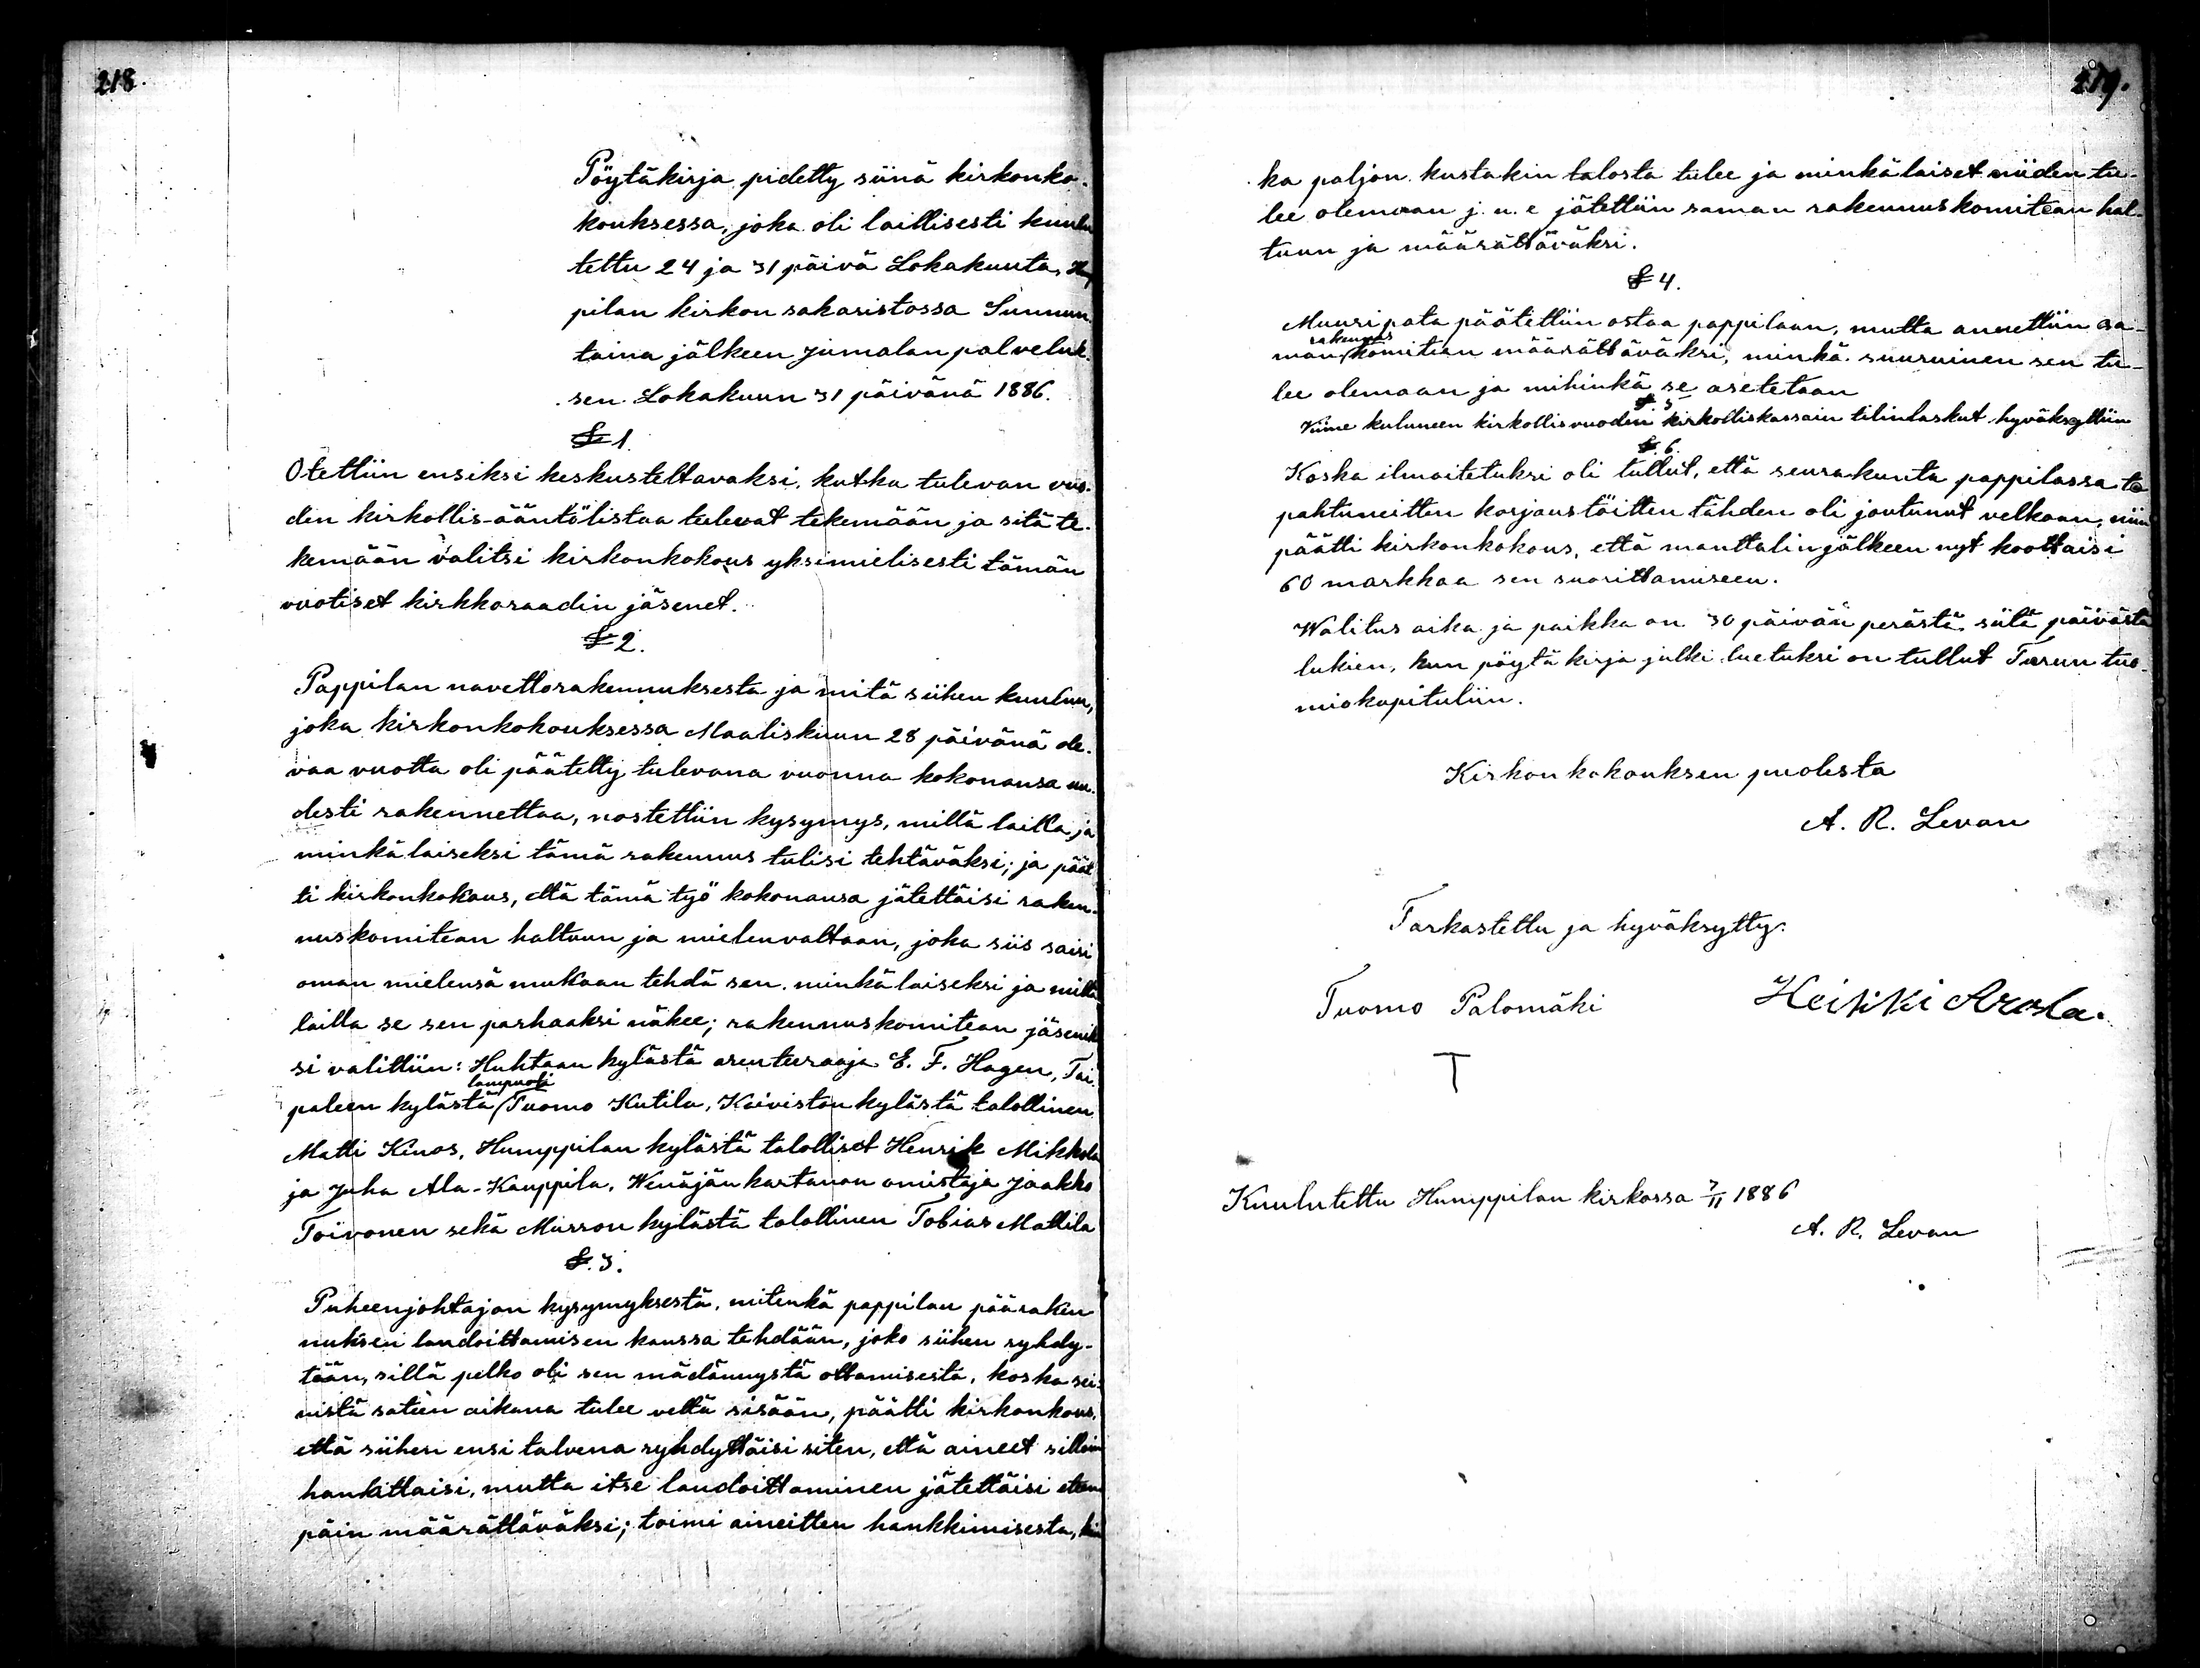 218.
Pöytäkirja pidetty siinä kirkonko-
kouksessa, joka oli laillisesti kuulu
tettu 24 ja 31 päivä Lokakuuta, Hump
pilan kirkon sakaristossa Sunnun
taina jälkeen jumalan palveluk-
sen Lokakuun 31 päivänä 1886.
§ 1
Otettiin ensiksi keskusteltavaksi, kutka tulevan vuo-
den kirkollis-ääntölistaa tulevat tekemään ja sitä te-
kemään valitsi kirkonkokous yksimielisesti tämän
vuotiset kirkkoraadin jäsenet.
§ 2.
Pappilan navettorakennuksesta ja mitä siihen kuuluu,
joka kirkonkokouksessa Maaliskuun 28 päivänä ole-
vaa vuotta oli päätetty tulevana vuonna kokonansa uu-
desti rakennettaa, nostettiin kysymys, millä lailla ja
minkälaiseksi tämä rakennus tulisi tehtäväksi; ja päät
ti kirkonkokous, että tämä työ kokonansa jätettäisi raken-
nuskomitean haltuun ja mielenvaltaan, joka siis saisi
oman mielensä mukaan tehdä sen minkälaiseksi ja millä
lailla se sen parhaaksi näkee; rakennuskomitean jäsenik
si valittiin: Huhtaan kylästä arenteeraaja E. F. Hagen, Tai-
lampuoti
paleen kylästä Tuomo Kutila, Koivistan kylästä talollinen
Matti Kinos, Humppilan kylästä talolliset Henrik Mikkola
ja Juha Ala-Kauppila, Wenäjän kartanon omistaja Jaakko
Toivonen sekä Murron kylästä talollinen Tobias Mattila
§. 3.
Puheenjohtajan kysymyksestä, mitenkä pappilan pääraken
nuksen laudoittamisen kanssa tehdään, joko siihen ryhdy-
tään, sillä pelko oli sen mädännystä ottamisesta, koska sei-
nistä sateen aikana tulee vettä sisään, päätti kirkonkous,
että siihen ensi talvena ryhdyttäisi siten, että aineet silloin
hankittaisi, mutta itse laudoittaminen jätettäisi eteen
päin määrättäväksi; toimi aineitten hankkimisesta, kuin
219.
ka paljon kustakin talosta tulee ja minkälaiset niiden tu-
lee olemaan j. n. e jätettiin saman rakennuskomitean hal-
tuun ja määrättäväksi.
§ 4.
Muuripata päätettiin ostaa pappilaan, mutta annettiin sa-
rakennus
man komitean määrättäväksi, minkä suuruinen sen tu-
lee olemaan ja mihinkä se asetetaan
§ 5
Viime kuluneen kirkollisvuoden kirkolliskassain tilinlaskut hyväksyttiin
§. 6.
Koska ilmoitetuksi oli tullut, että seurakunta pappilassa ta
pahtuneitten korjaustöitten tähden oli joutunut velkaan, niin
päätti kirkonkokous, että manttalin jälkeen nyt koottaisi
60 markkaa sen suorittamiseen.
Walitus aika ja paikka on 30 päivää perästä siitä päivästä
lukien, kun pöytäkirja julki luetuksi on tullut Turun tuo-
miokapituliin.
Kirkonkokouksen puolesta
A. R. Levan
Tarkastettu ja hyväksytty.
Tuomo Palomäki
Heikki Arola.
T
Kuulutettu Humppilan kirkossa 7/11 1886
A. R. Levan